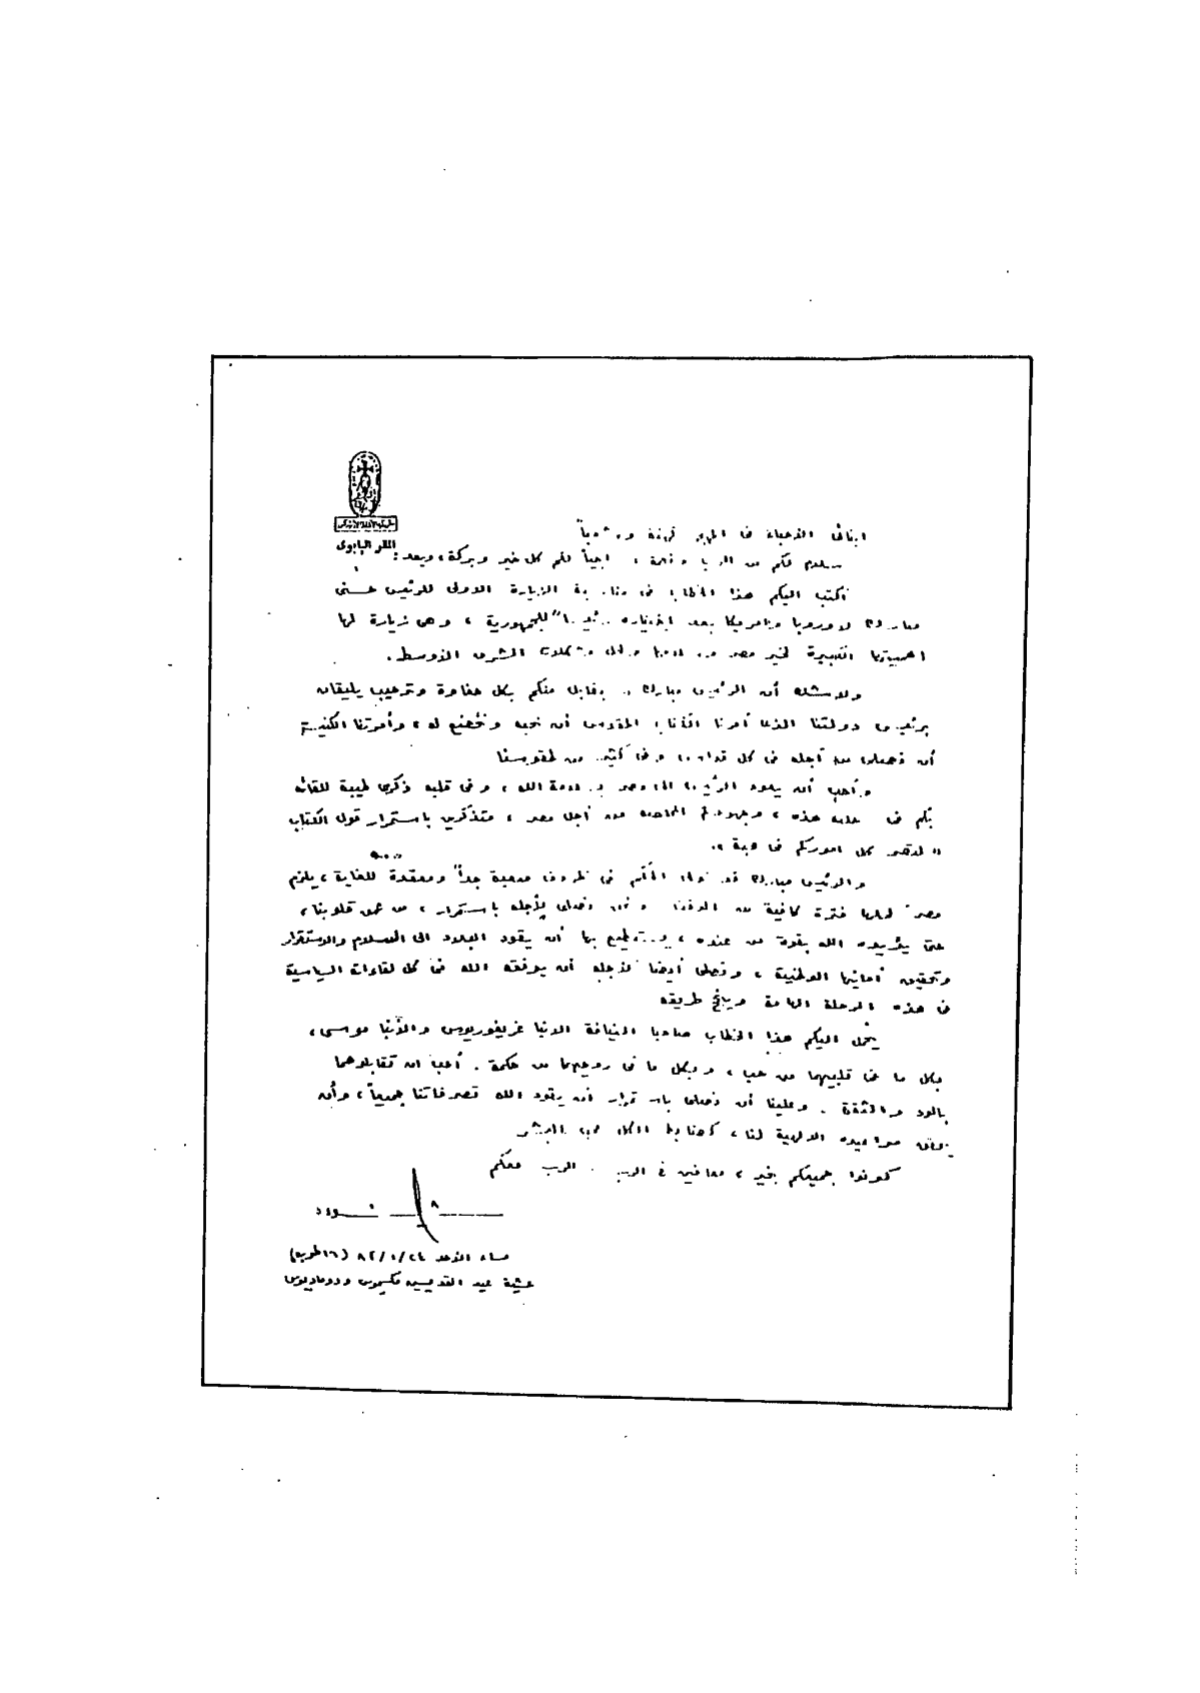 المقر البابوى
ابنائى الأحباء فى المهجر كهنة وشعباً
سلام لكم من الرب ونعمة، راجياً لكم كل خير وبركة، وبعد:
اكتب اليكم هذا الخطاب فى مناسبة الزيارة الاولى للرئيس حسنى
مبارك لاوروبا وامريكا بعد اختياره رئيساً للجمهورية، وهى زيارة لها
اهميتها الكبيرة لخير مصر و وحل مشكلات الشرق الأوسط.
ولاشك أن الرئيس مبارك يقابل منكم بكل حفاوة وترحيب يليقان
برئيس دولتنا الذى أمرنا الكتاب المقدس أن نحبه ونخضع له، وأمرتنا الكنيسة
أن نصلى من أجله فى كل قداس وفى كثير من طقوسنا
وأحب أن يعود الرئيس الى مصر بسلامة الله، وفى قلبه ذكرى طيبة للقائه
بكم فى هذه، وجهودكم المخلصة من أجل مصر، متذكرين باستمرار قول الكتاب
" لتصر كل اموركم فى محبة ".
والرئيس مبارك قد تولى الحكم فى ظروف صعبة جداً ومعقدة للغاية، يلزم
لحلها فترة كافية من الوقت ونحن نصلى لأجله باستمرار، من عمق قلوبنا،
حتى يؤيده الله بقوة من عنده، يستطيع بها أن يقود البلاد الى السلام والاستقرار
وتحقيق أمانيها الوطنية، ونصلى أيضا لأجله أن يوفقه الله فى كل لقاءات السياسية
فى هذه المرحلة الهامة وينجح طريقه
يحمل اليكم هذا الخطاب صاحبا النيافة الانبا غريغوريوس والأنبا موسى،
بكل ما فى قلبيهما من حب، وبكل ما فى روحيهما من حكمة. أحب ان تقابلوهما
بالود والثقة. وعلينا أن نصلى باستمرار أن يقود الله تصرفاتنا جميعاً، وأن
مواعيده الالهية لنا، كضابط الكل محب البشر
كونوا جميعكم بخير، معافين فى الرب. الرب معكم
شنوده
مساء الأحد ٢٤/١/٨٢ (١٦ طوبه)
عشية عيد القديسين مكسيموس ودوماديوس